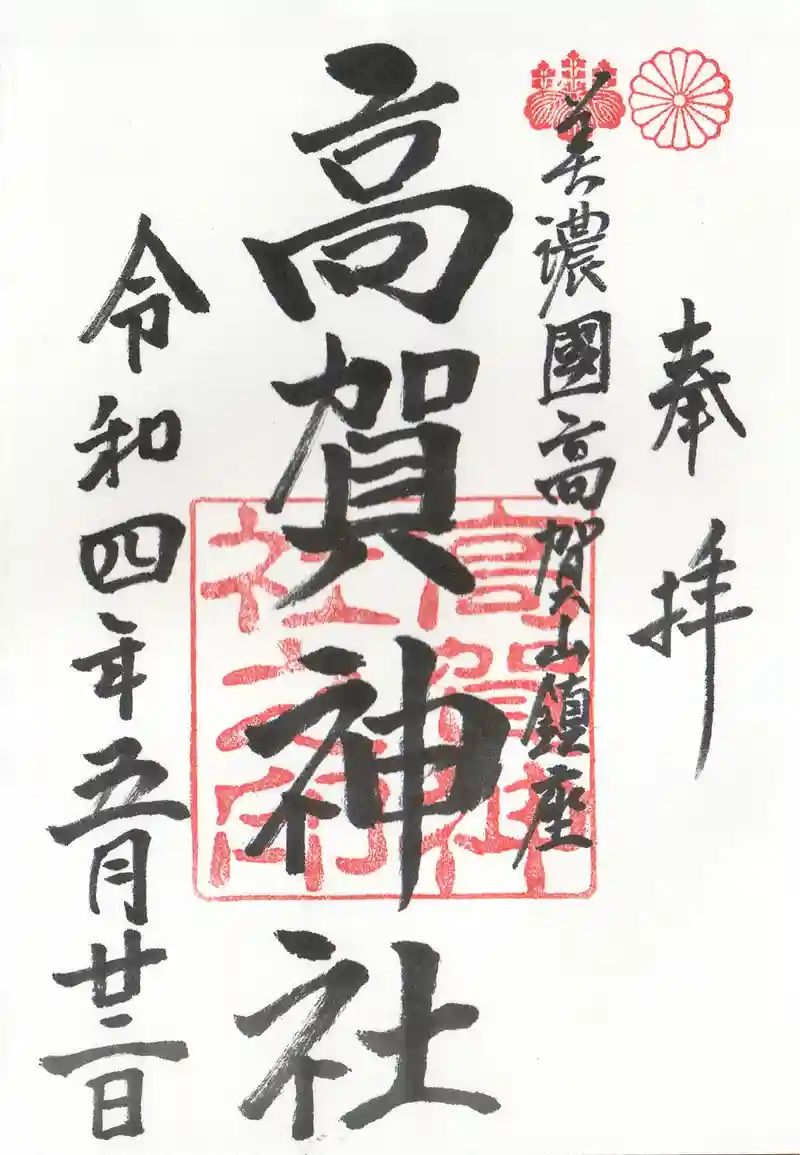 奉拝
美濃國高賀山鎮座
高賀神社
高賀神社之印
令和四年五月廿二日